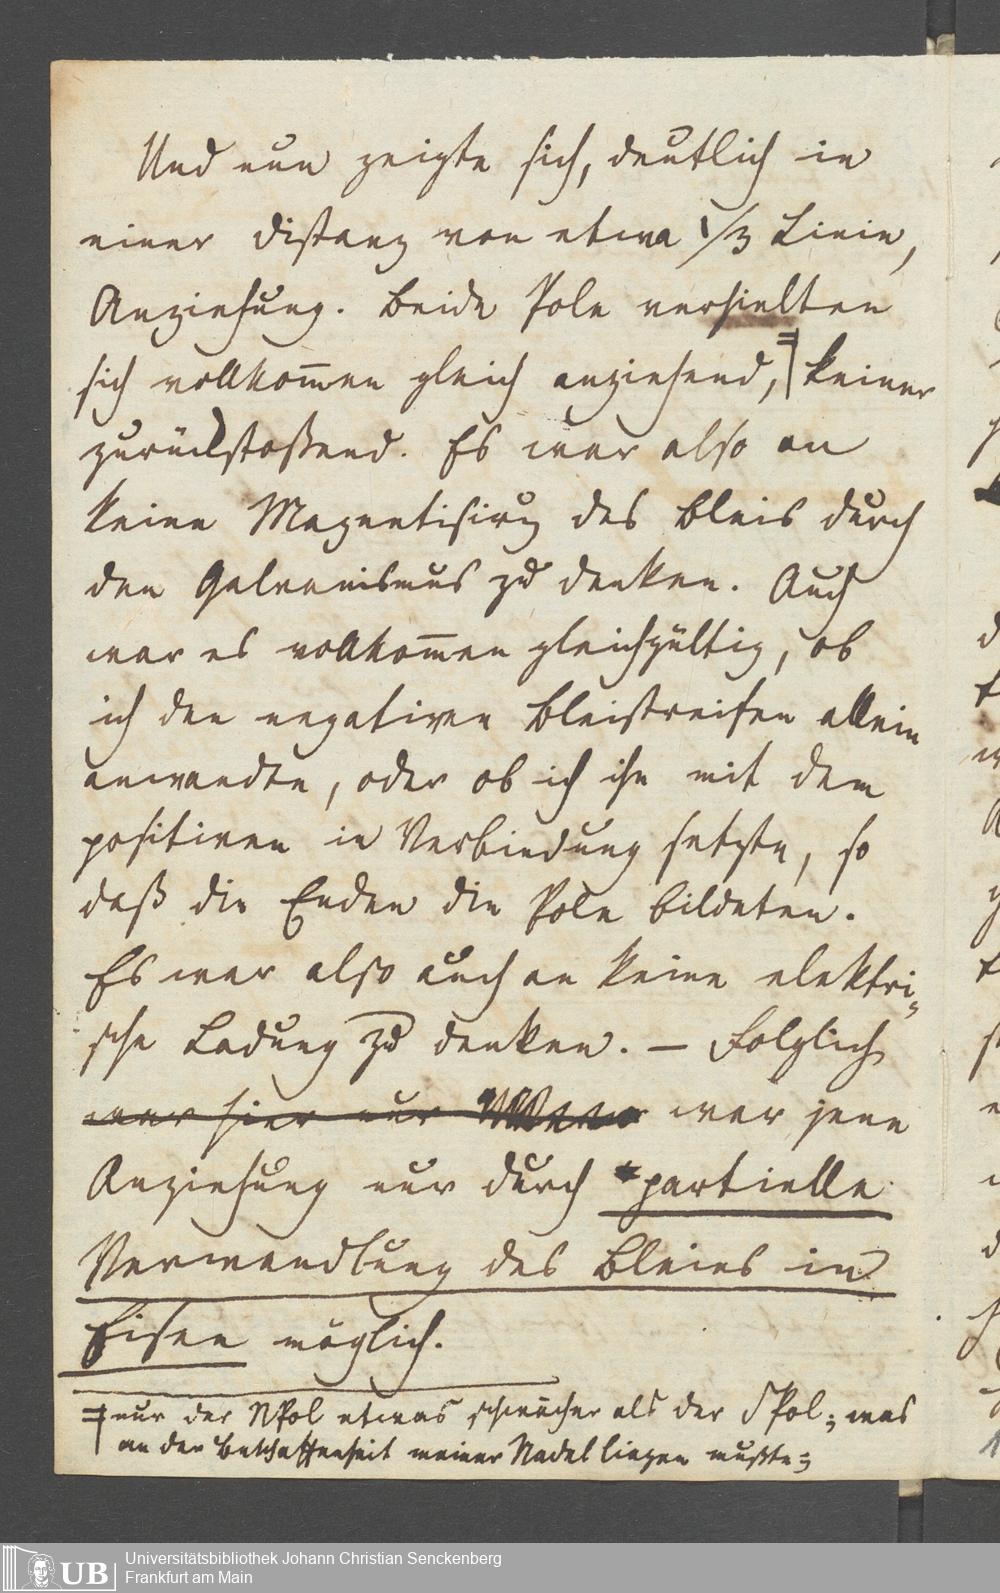 Und nun zeigte sich, deutlich in
einer Distanz von etwa 1/3 Linie,
Anziehung. Beide Pole verhielten
sich vollkom̄en gleich anziehend,╡keiner
zurückstoßend. Es war also an
keine Magnetisirug des Bleis durch
den Galvanismus zu denken. Auch
war es vollkom̄en gleichgültig, ob
ich den negativen Bleistreifen allein
anwandte, oder ob ich ihn mit dem
positiven in Verbindung setzte, so
daß die Enden die Pole bildeten.
Es war also auch an keine elektri-
sche Ladung zu denken. — Folglich
war hier nur war jene
Anziehung nur durch partielle
Verwandlung des Bleies in
Eisen möglich.
╡nur der NPol etwas schwächer als der SPol; was
an der Beschaffenheit meiner Nadel liegen mußte;
Universitätsbibliothek Johann Christian Senckenberg
Frankfurt am Main
UB